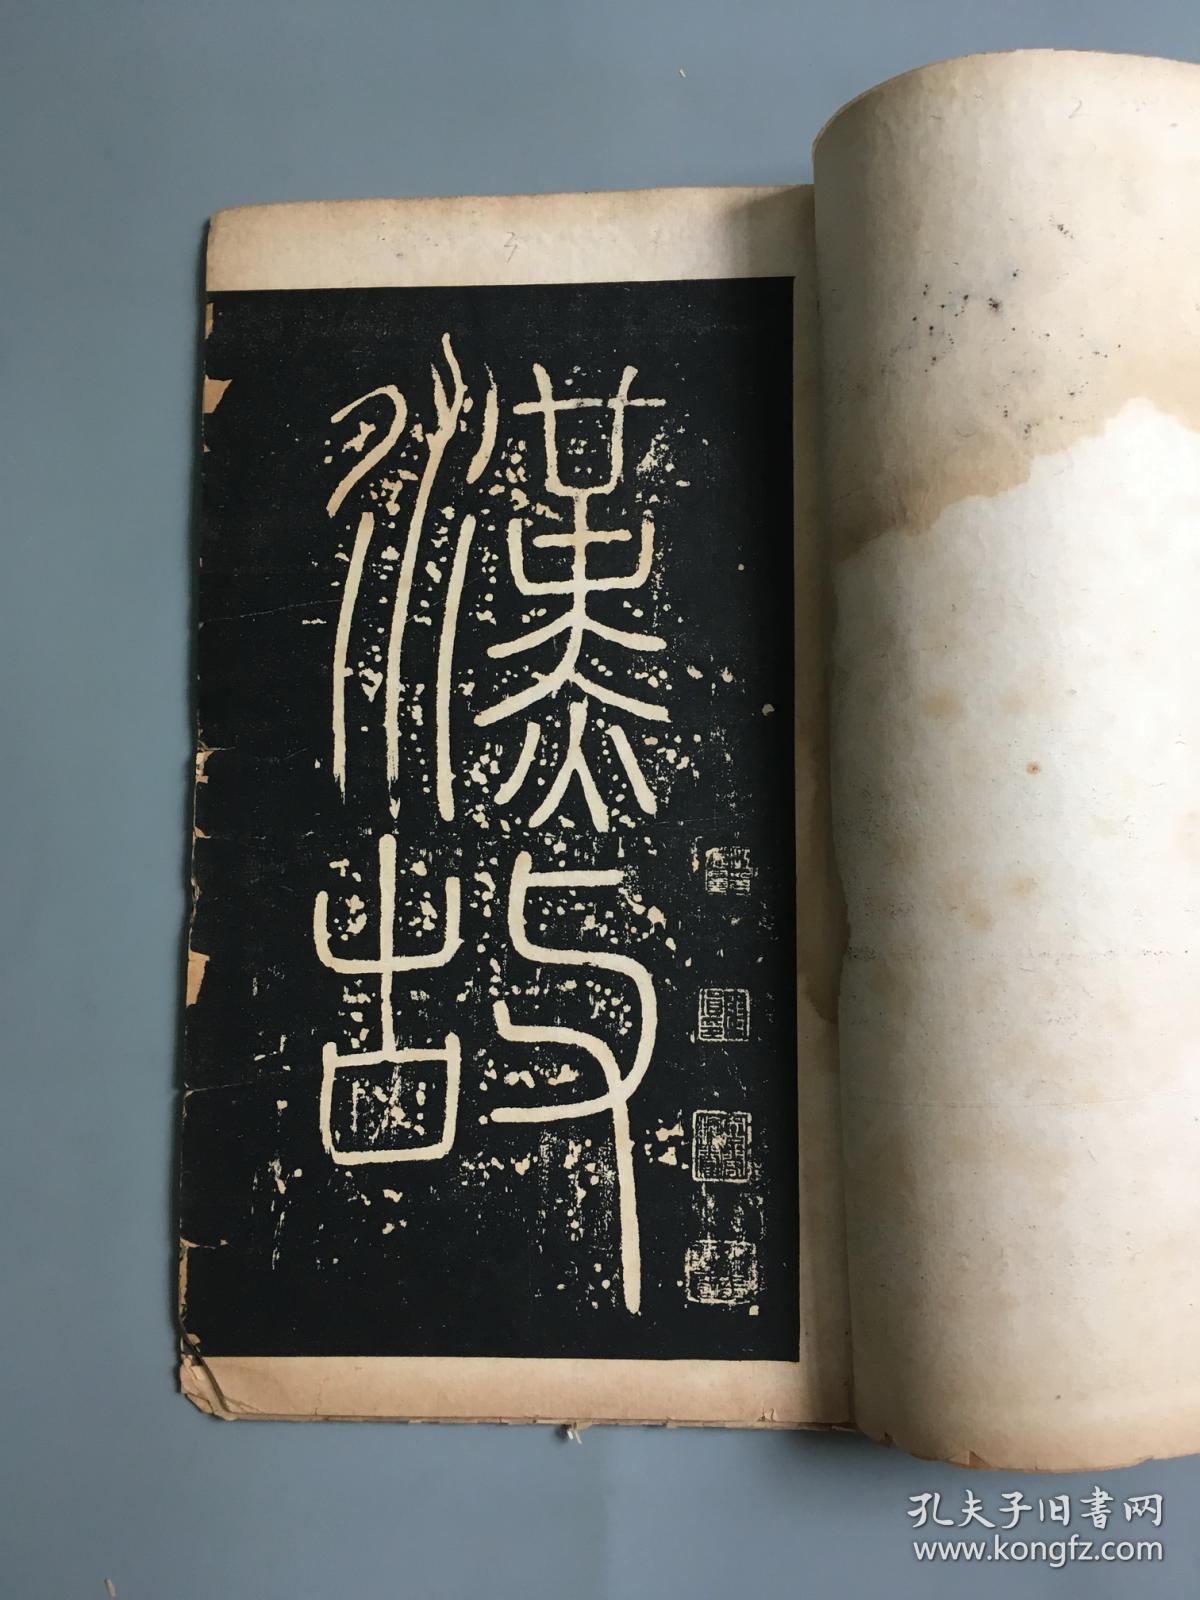 漢故
孔夫子旧书网
www.kongfz.com